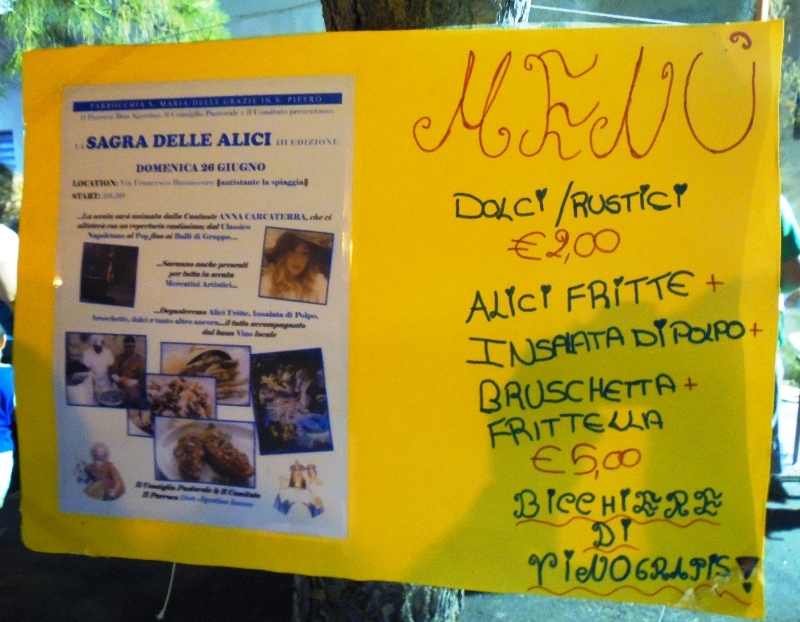 PARROCCHIA S. MARIA DELLE GRAZIE IN S. PIETRO
Il Parroco Don Agostino, il Consiglio Pastorale e il Comitato presentano
LA SAGRA DELLE ALICI III EDIZIONE
DOMENICA 26 GIUGNO
LOCATION: Via Francesco Buonocore (antistante la spiaggia)
START: 20,30
...La serata sarà animata dalla Cantante ANNA CARCATERRA, che ci
allieterà con un repertorio vastissimo; dal Classico
Napoletano al Pop fino ai Balli di Gruppo...
...Saranno anche presenti
per tutta la serata
Mercatini Artistici...
...Degusteremo Alici Fritte, Insalata di Polpo,
bruschette, dolci e tanto altro ancora...il tutto accompagnato
dal buon Vino locale
Il Consiglio Pastorale & Il Comitato
Il Parroco Don Agostino
MENÙ
DOLCI/RUSTICI
€2,00
ALICI FRITTE +
INSALATA DI POLPO +
BRUSCHETTA +
FRITTELLA
€5,00
BICCHIERE
DI
VINO GRATIS!